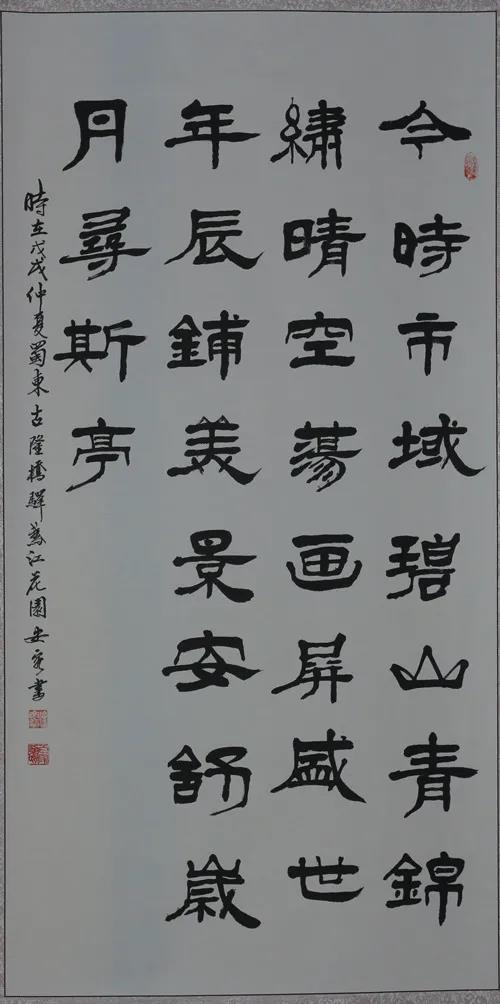 今時市域碧山青錦
繡晴空蕩画屏盛世
年辰鋪美景安舒歲
月尋斯亭
時在戊戌仲夏蜀東古隆橋驛江花園安書